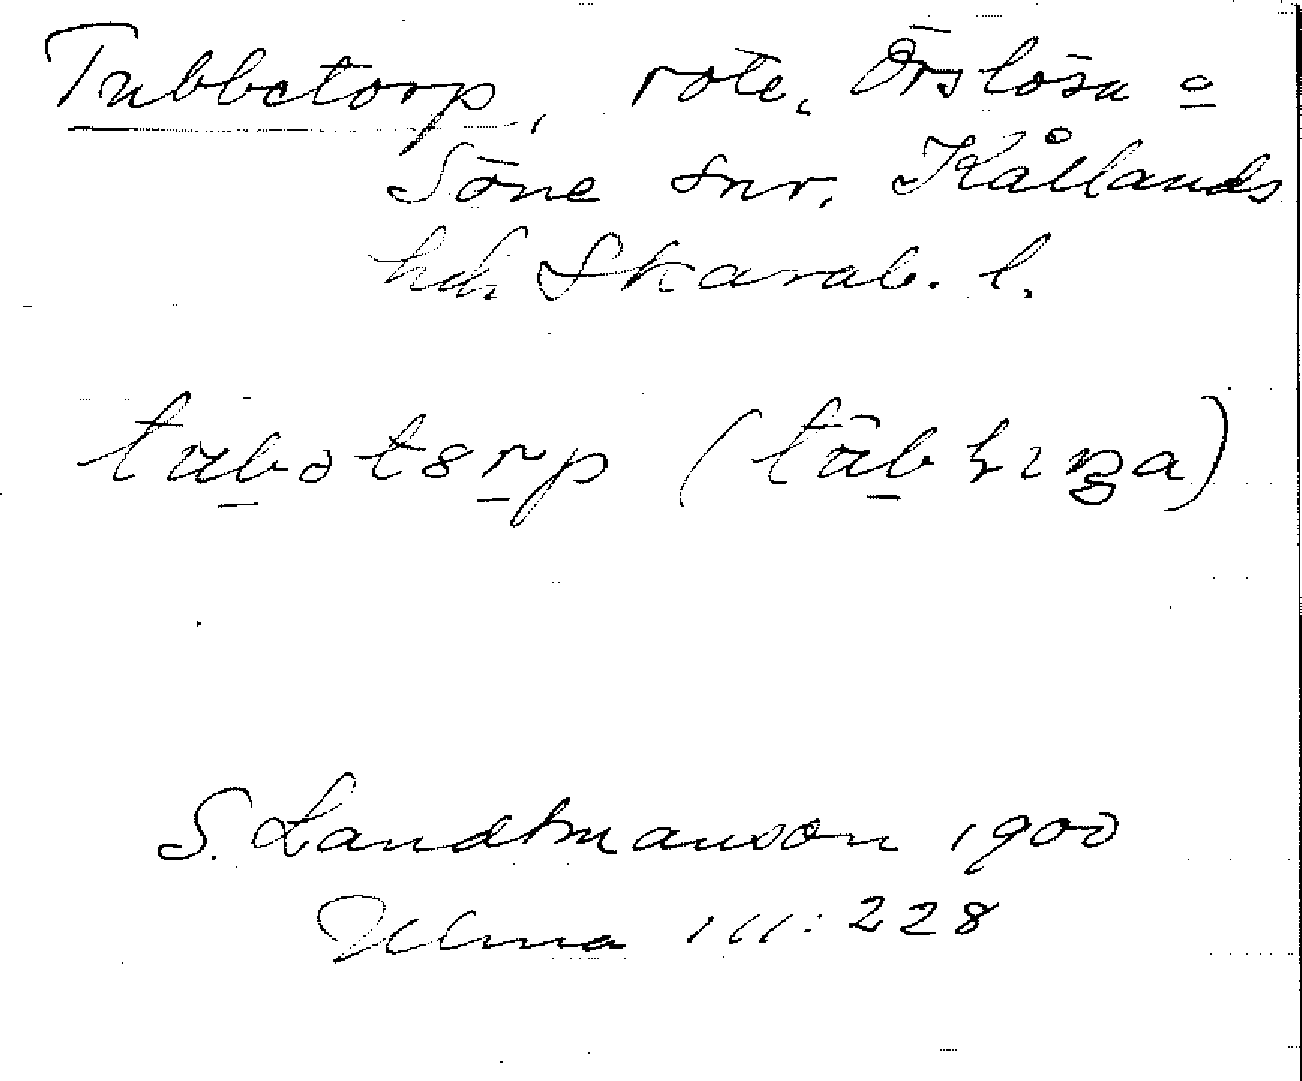 Tubbetorp, rote, Örslösa o
Söne snr. Kållands
hd. Skarab. l.
tubətɞrp (tūbhıŋa)
S. Landtmanson 1900
Ulma 111:228